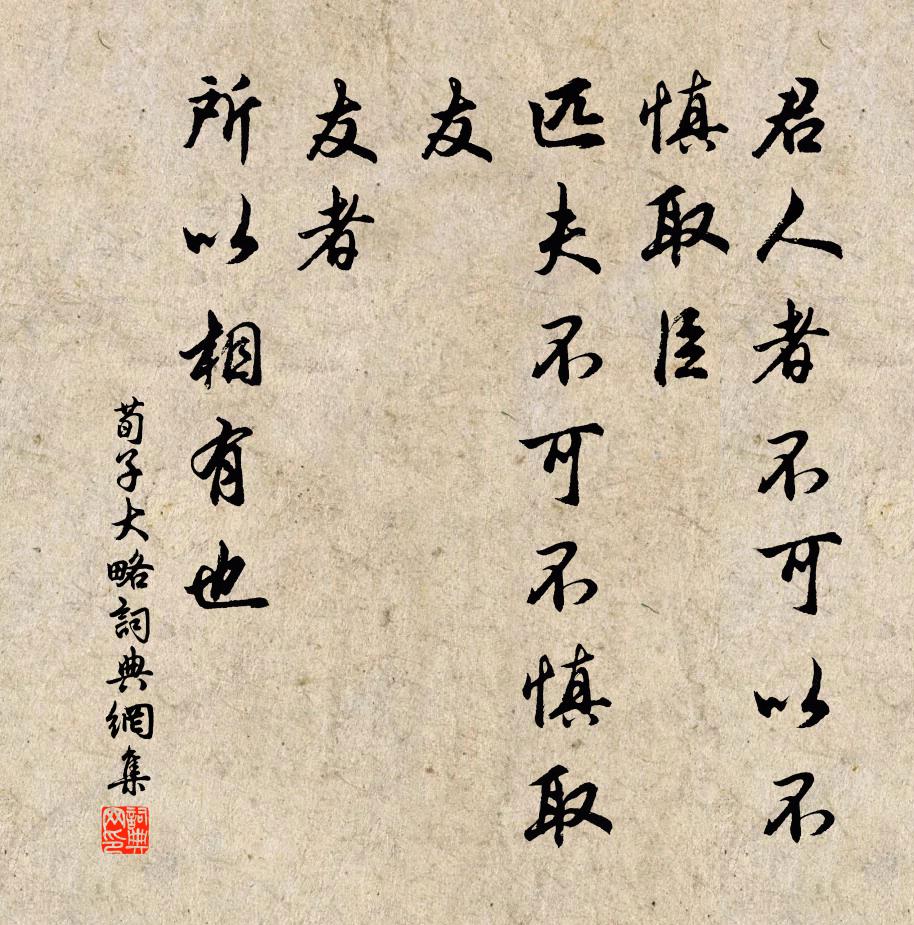 君人者不可以不
慎取臣
匹夫不可不慎取
友
友者
所以相有也
荀子大略詞典網集
詞典网印